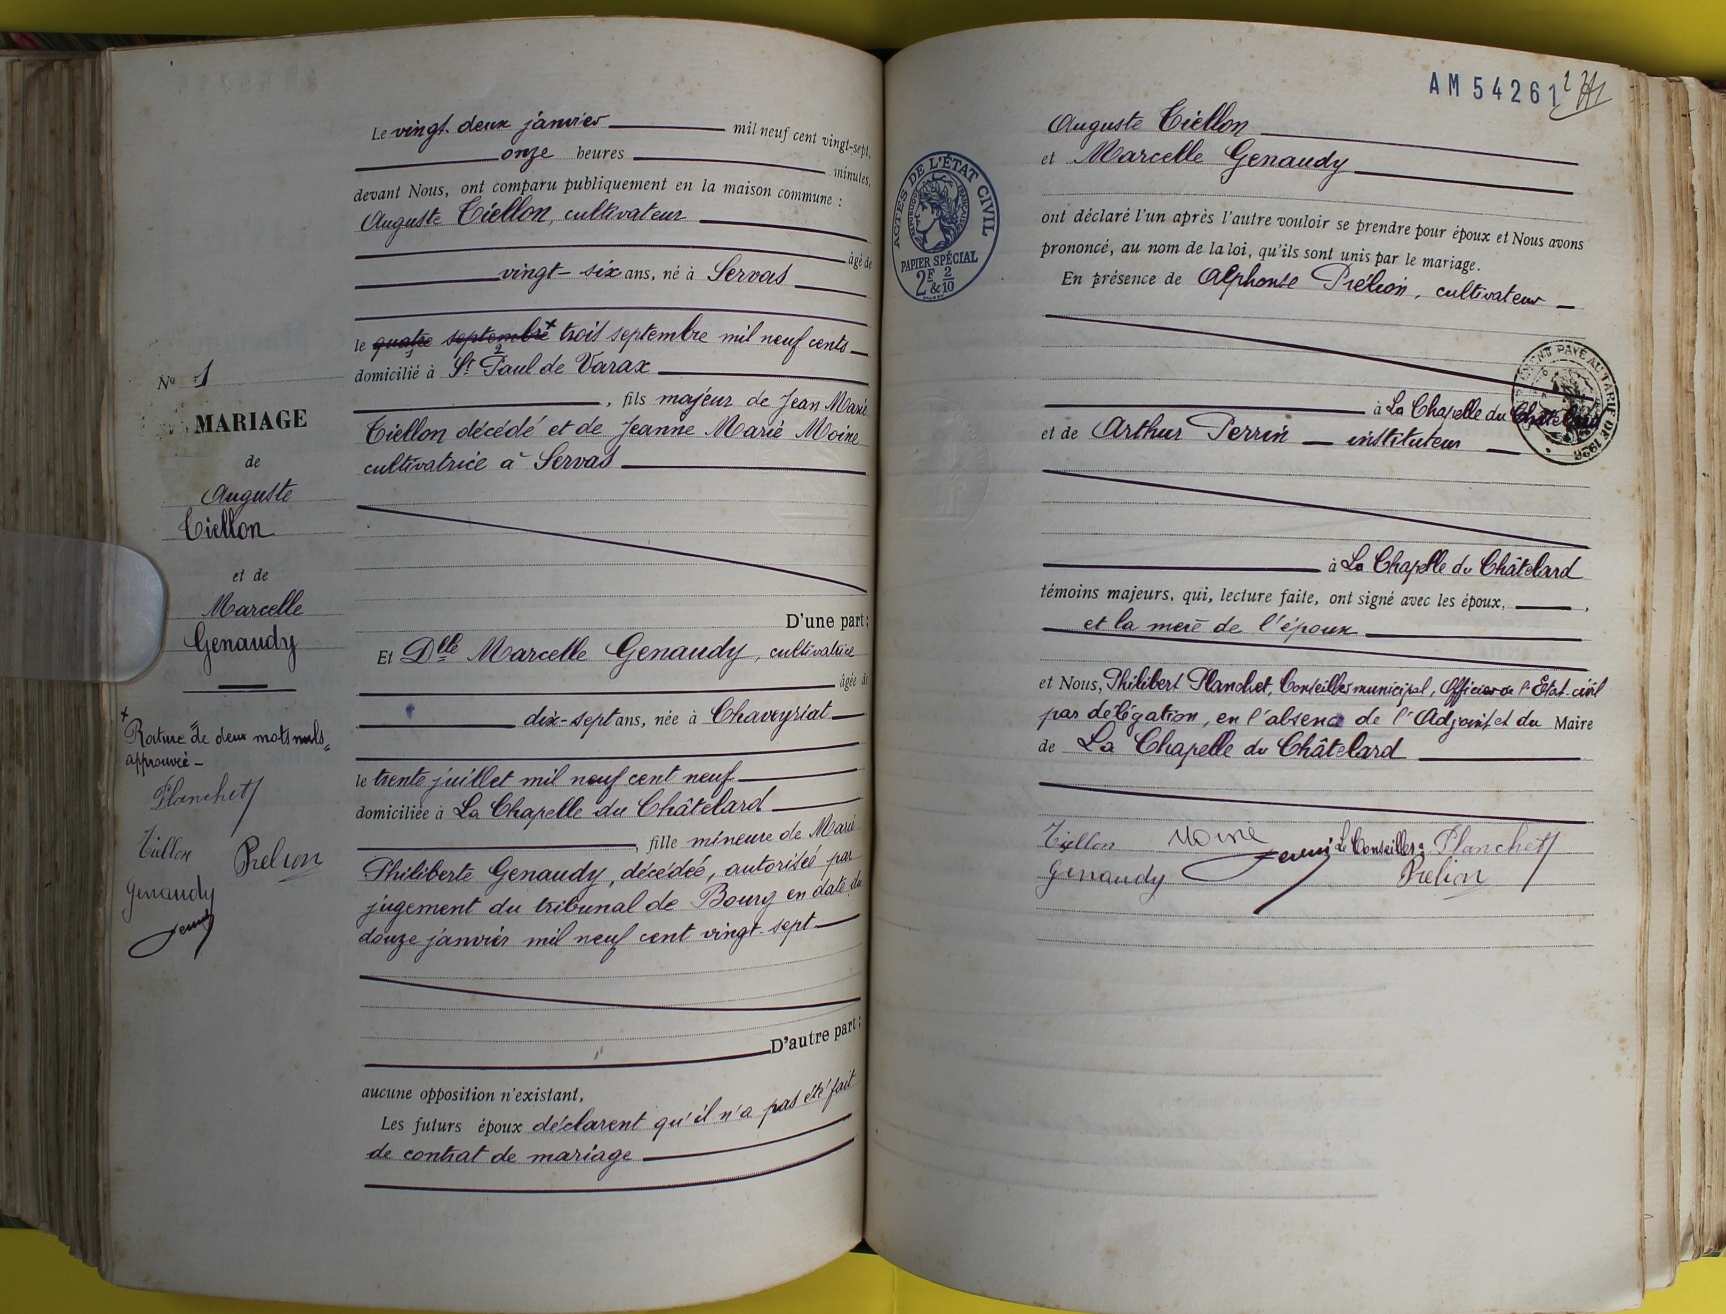 Le vingt-deux janvier mil neuf cent vingt-sept,
onze heures minutes,
devant Nous, ont comparu publiquement en la maison commune :
Auguste Tiellon, cultivateur
âgé de
vingt-six ans, né à Servas
le quatre septembre + trois septembre mil neuf cents
domicilié à St Paul de Varax
, fils majeur de Jean Marie
Tiellon décédé et de Jeanne Marie Moine
cultivatrice à Servas
D'une part :
Et Dlle Marcelle Genaudy, cultivatrice
âgée de
dix-sept ans, née à Chaveyriat
le trente juillet mil neuf cent neuf
domiciliée à La Chapelle du Châtelard
, fille mineure de Marie
Philiberte Genaudy, décédée, autorisée par
jugement du tribunal de Bourg en date du
douze janvier mil neuf cent vingt-sept
D'autre part :
aucune opposition n'existant,
Les futurs époux déclarent qu'il n'a pas été fait
de contrat de mariage
No 1
MARIAGE
de
Auguste
Tiellon
et de
Marcelle
Genaudy
+ Rature de deux mots nuls
approuvée -
Planchet
Tiellon Prelion
Genaudy
Perrin
AM 54261
ACTES DE L'ÉTAT CIVIL
RÉPUBLIQUE FRANÇAISE
PAPIER SPÉCIAL
2F & 2/10
Auguste Tiellon
et Marcelle Genaudy
ont déclaré l'un après l'autre vouloir se prendre pour époux et Nous avons
prononcé, au nom de la loi, qu'ils sont unis par le mariage.
En présence de Alphonse Prélion, cultivateur
PAYÉ AU TARIF DE 1926
à La Chapelle du Châtelard
et de Arthur Perrin instituteur
à La Chapelle du Châtelard
témoins majeurs, qui, lecture faite, ont signé avec les époux,
et la mère de l'époux
et Nous, Philibert Planchet, Conseiller municipal, Officier de l'État-civil
par délégation, en l'absence de l'Adjoint et du Maire
de La Chapelle du Châtelard
Tiellon Moine Perrin Le Conseiller : Planchet
Genaudy Prelion